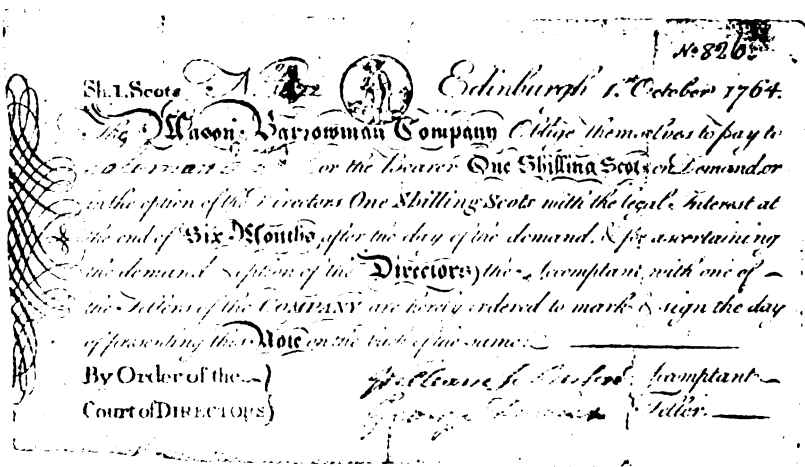 No 826.
Sh.1.Scots Edinburgh 1.st October 1764.
The Mason Barrowman Company Oblige themselves to pay to
or the Bearer One Shilling Scots on Demand, or
in the option of the Directors One Shilling Scots with the legal Interest at
the end of Six Months after the day of the demand, & for ascertaining
the demand & option of the Directors) the Accomptant, with one of
the Tellers of the COMPANY are hereby ordered to mark & sign the day
of presenting this Note on the back of the same.
By Order of the }
Court of DIRECTORS}
Accamptant
George Teller.